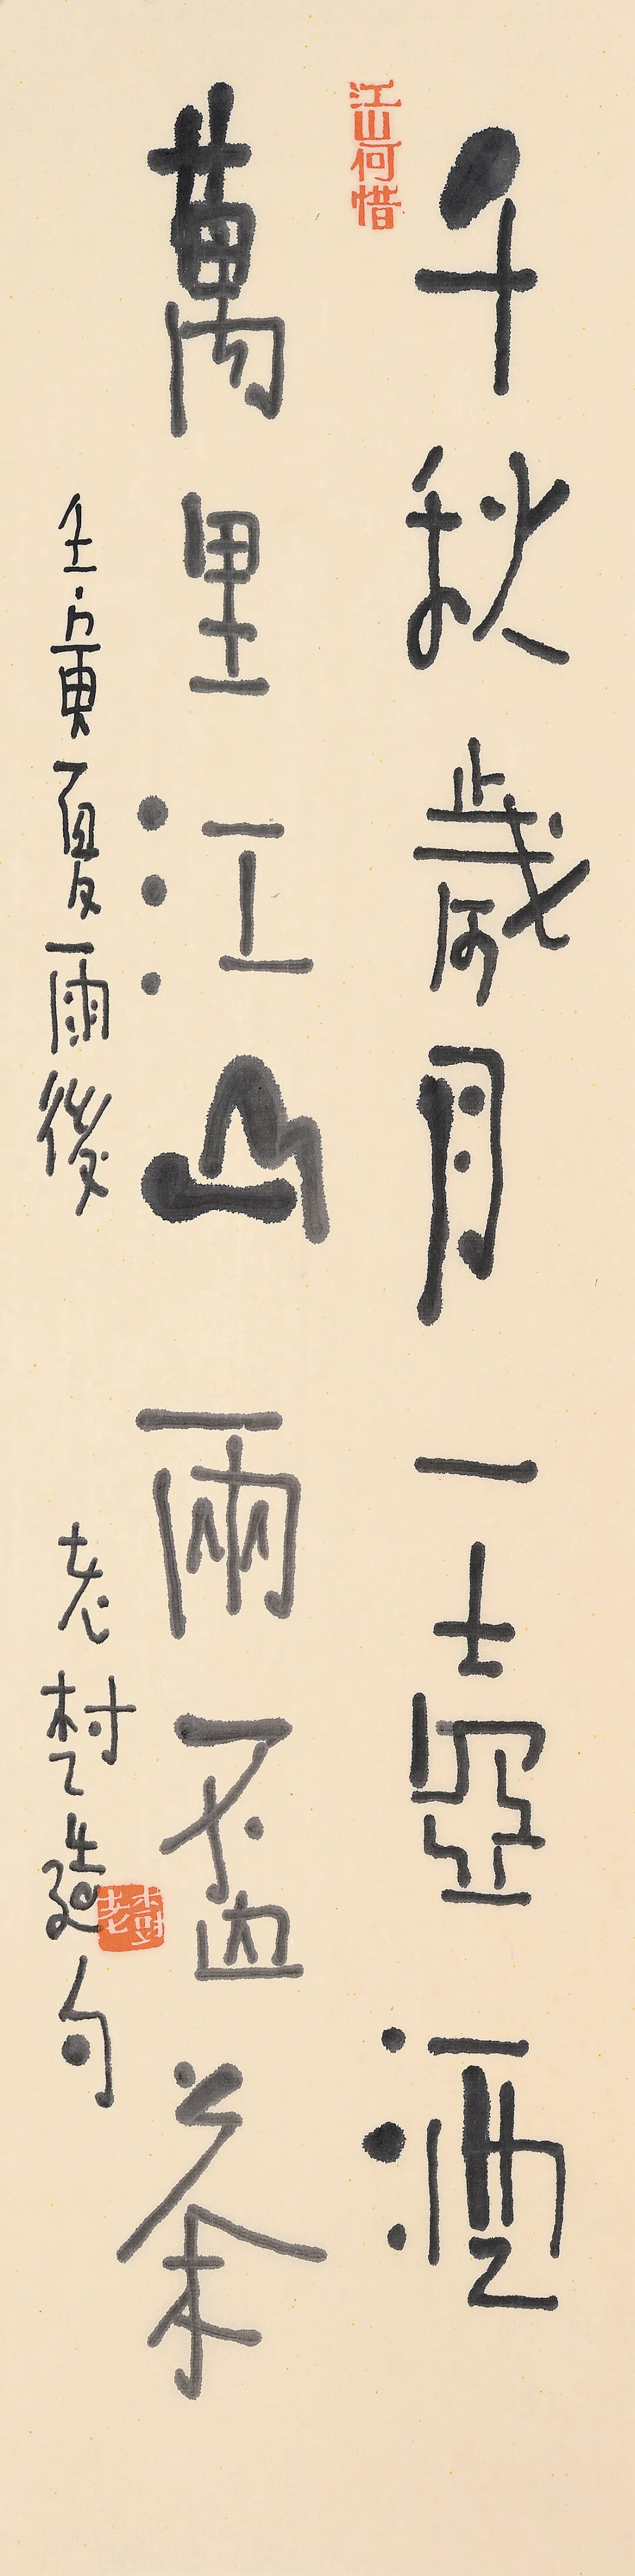 千秋歲月一壺酒
江山何惜
萬里江山兩盃茶
壬寅夏雨後 老樹造句
老樹